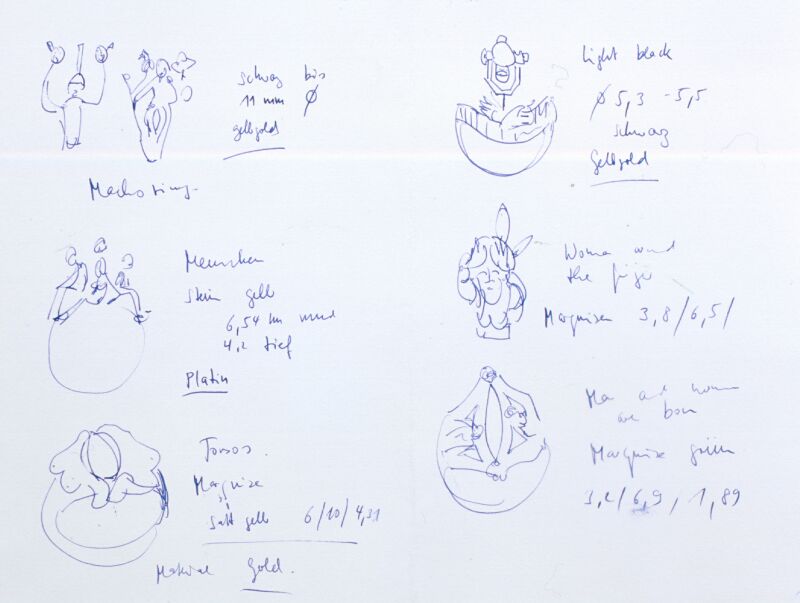 schwarz bis
11 mm Ø
gelbgold
Machoring.
Menschen
stein gelb
6,54 mm rund
4,2 tief
Platin
Torsos.
Marquise
satt gelb 6/10/4,31
Material Gold.
Light black
Ø 5,3 - 5,5
schwarz
Gelbgold
Woman and
the
Marquisen 3,8/6,5/
Man and woman
are born
Marquise grün
3,2/6,9, 1,89